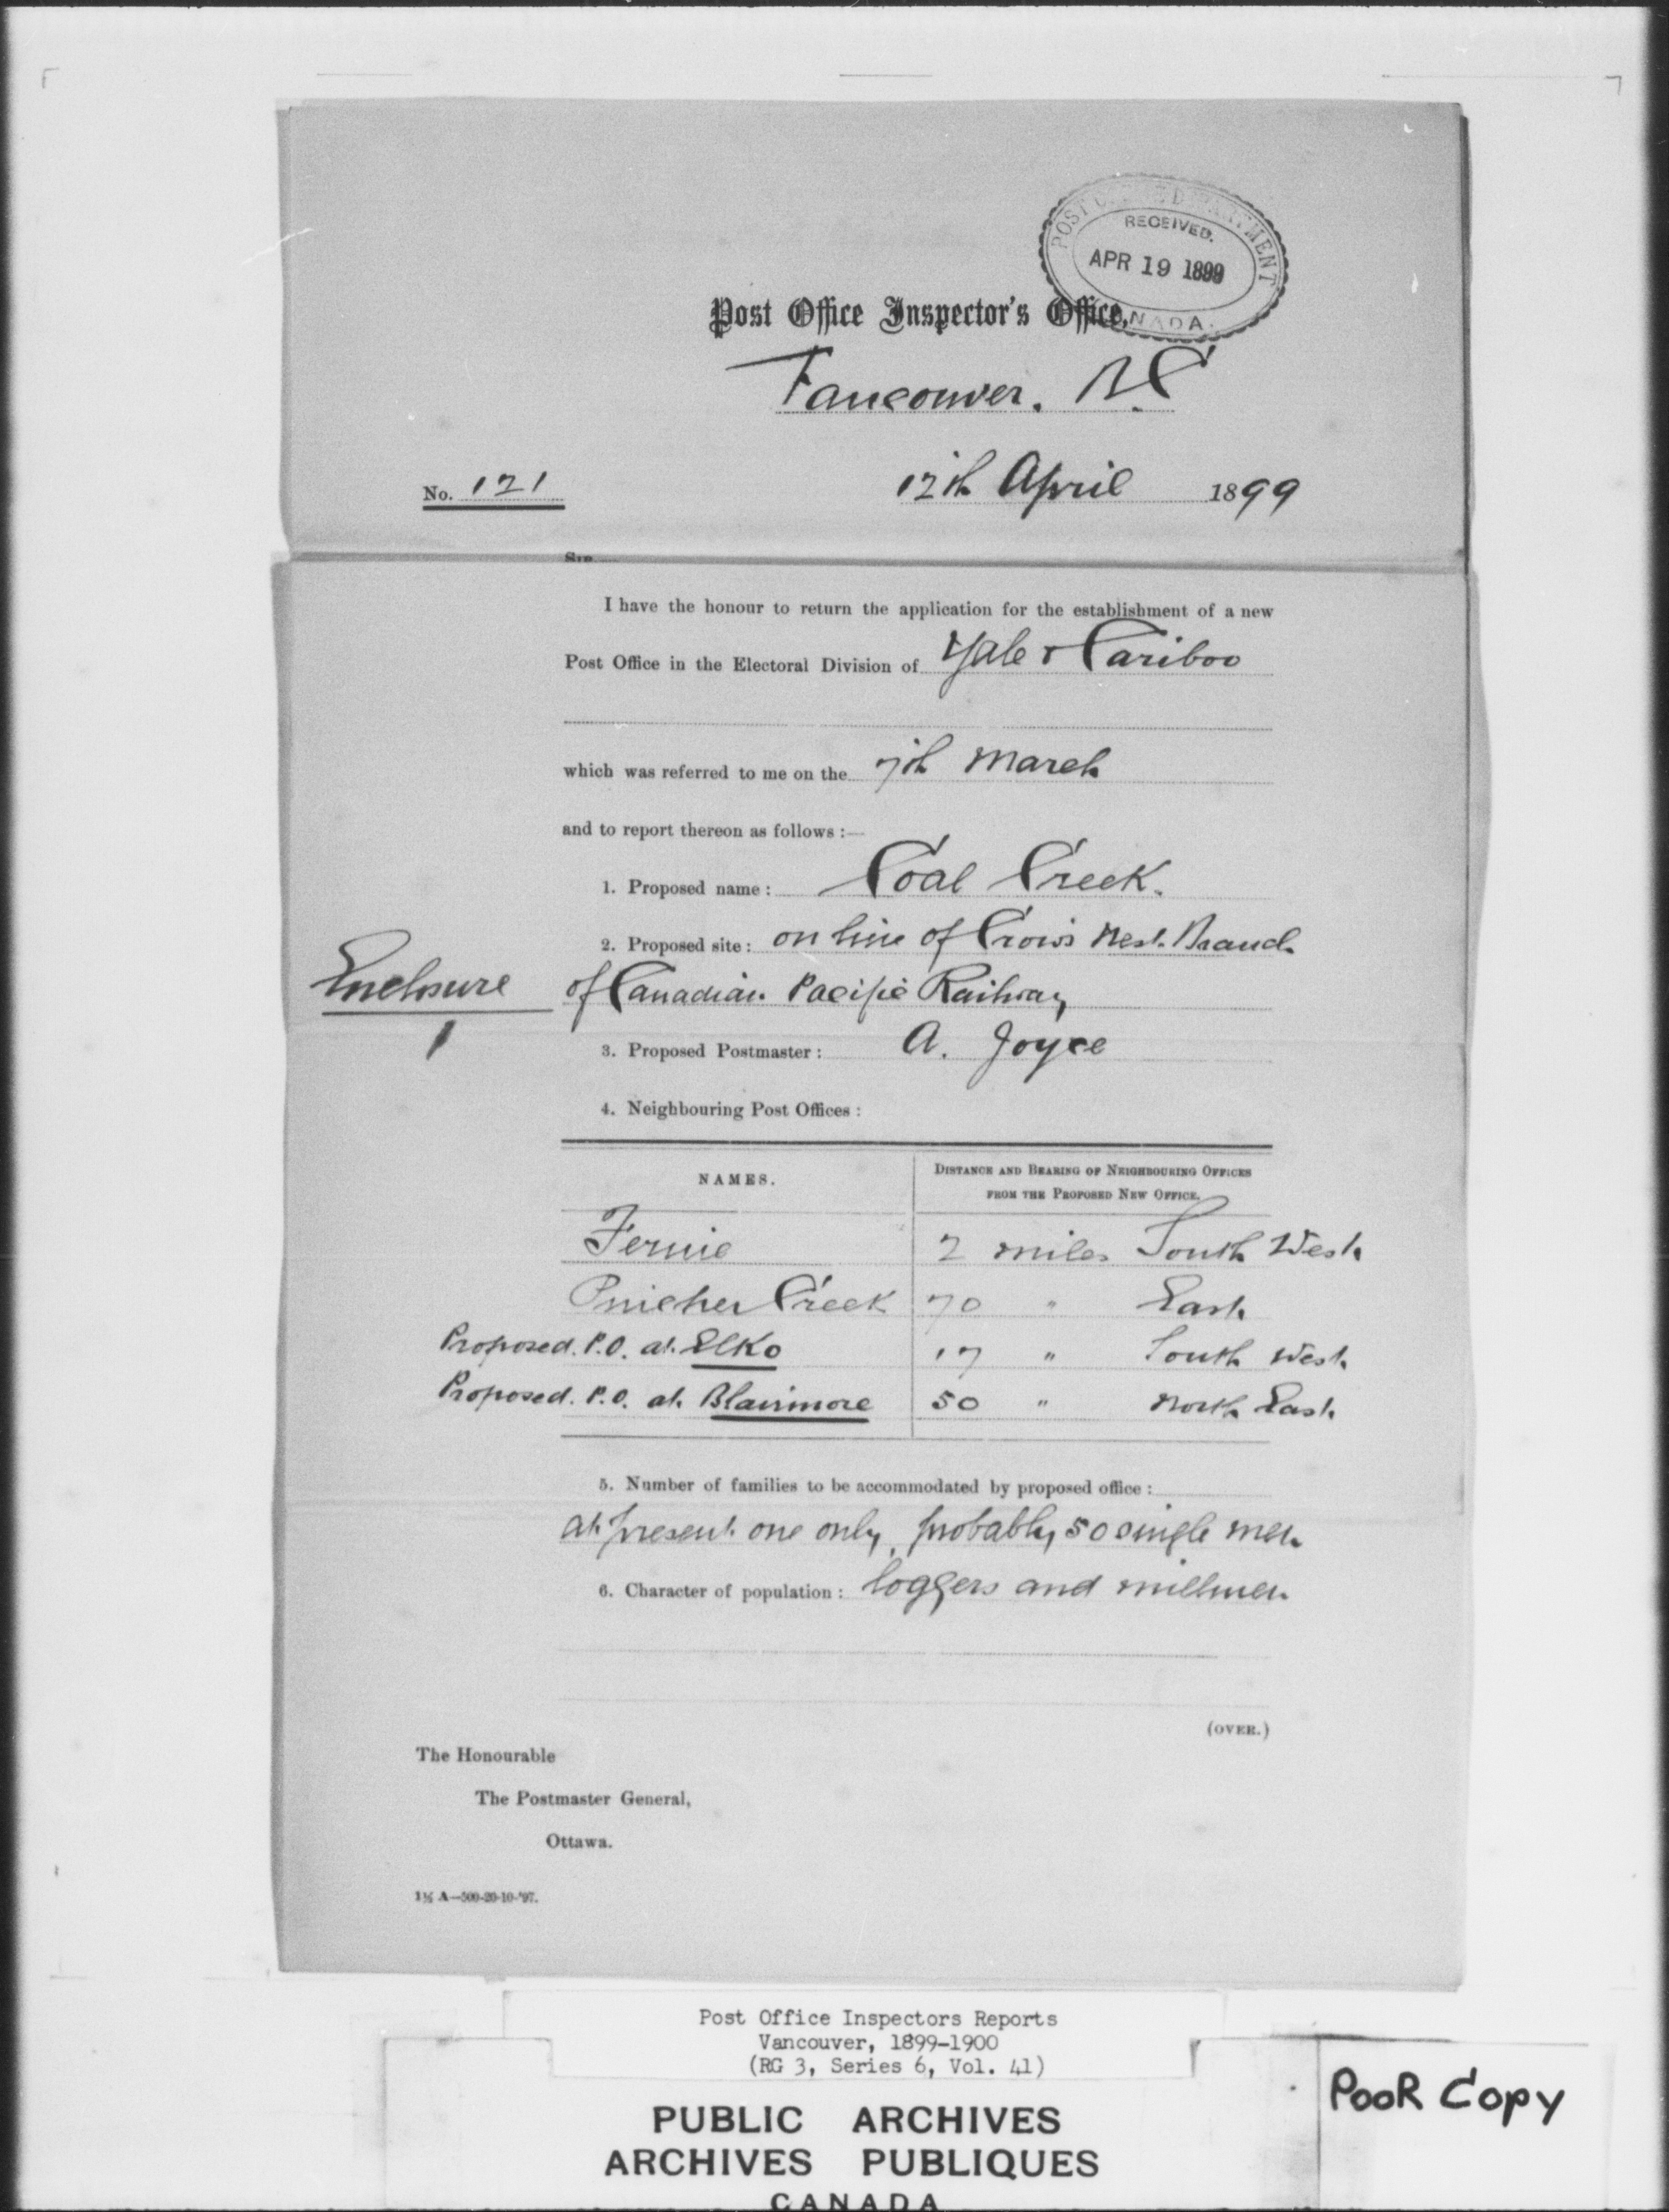 POST OFFICE DEPARTMENT
RECEIVED.
APR 19 1899
CANADA.
Post Office Inspector's Office,
Vancouver. B.C
No. 121
12th April 1899
Sir,
I have the honour to return the application for the establishment of a new
Post Office in the Electoral Division of Yale & Cariboo
which was referred to me on the 7th March
and to report thereon as follows :—
1. Proposed name : Coal Creek.
2. Proposed site : on line of Crow's Nest Branch
Enclosure
of Canadian Pacific Railway
1
3. Proposed Postmaster : A. Joyce
4. Neighbouring Post Offices :
NAMES.
DISTANCE AND BEARING OF NEIGHBOURING OFFICES
FROM THE PROPOSED NEW OFFICE.
Fernie 2 miles South West
Pincher Creek 70 " East
Proposed. P.O. at Elko 17 " South West
Proposed. P.O. at Blairmore 50 " North East
5. Number of families to be accommodated by proposed office :
at present one only, probably 50 single men
6. Character of population : loggers and millmen
(OVER.)
The Honourable
The Postmaster General,
Ottawa.
1½ A—500-20-10-'97.
Post Office Inspectors Reports
Vancouver, 1899-1900
(RG 3, Series 6, Vol. 41)
PUBLIC ARCHIVES
ARCHIVES PUBLIQUES
CANADA
POOR COPY